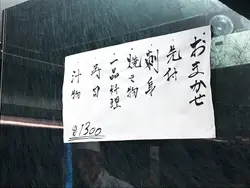 おまかせ
・先付
・刺身
・焼き物
・一品料理
・寿司
・汁物
1300